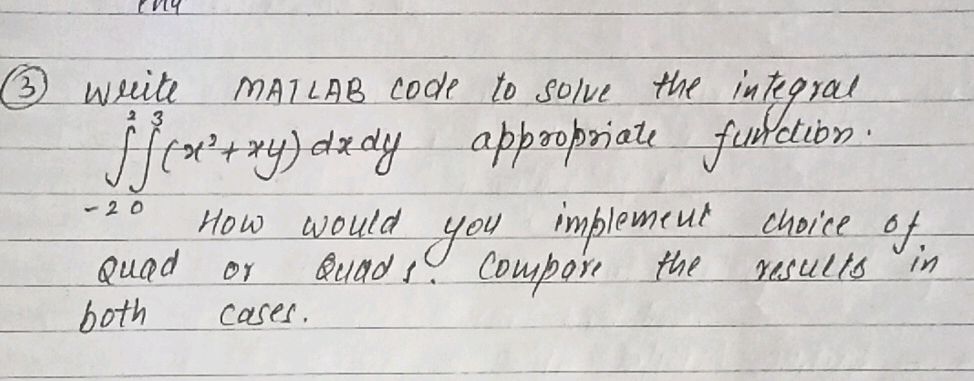 ③ write MATLAB code to solve the integral
∫_{-2}^{2} ∫_{0}^{3} (x² + xy) dx dy appropriate function.
How would you implement choice of
Quad or Quads. Compare the results in
both cases.